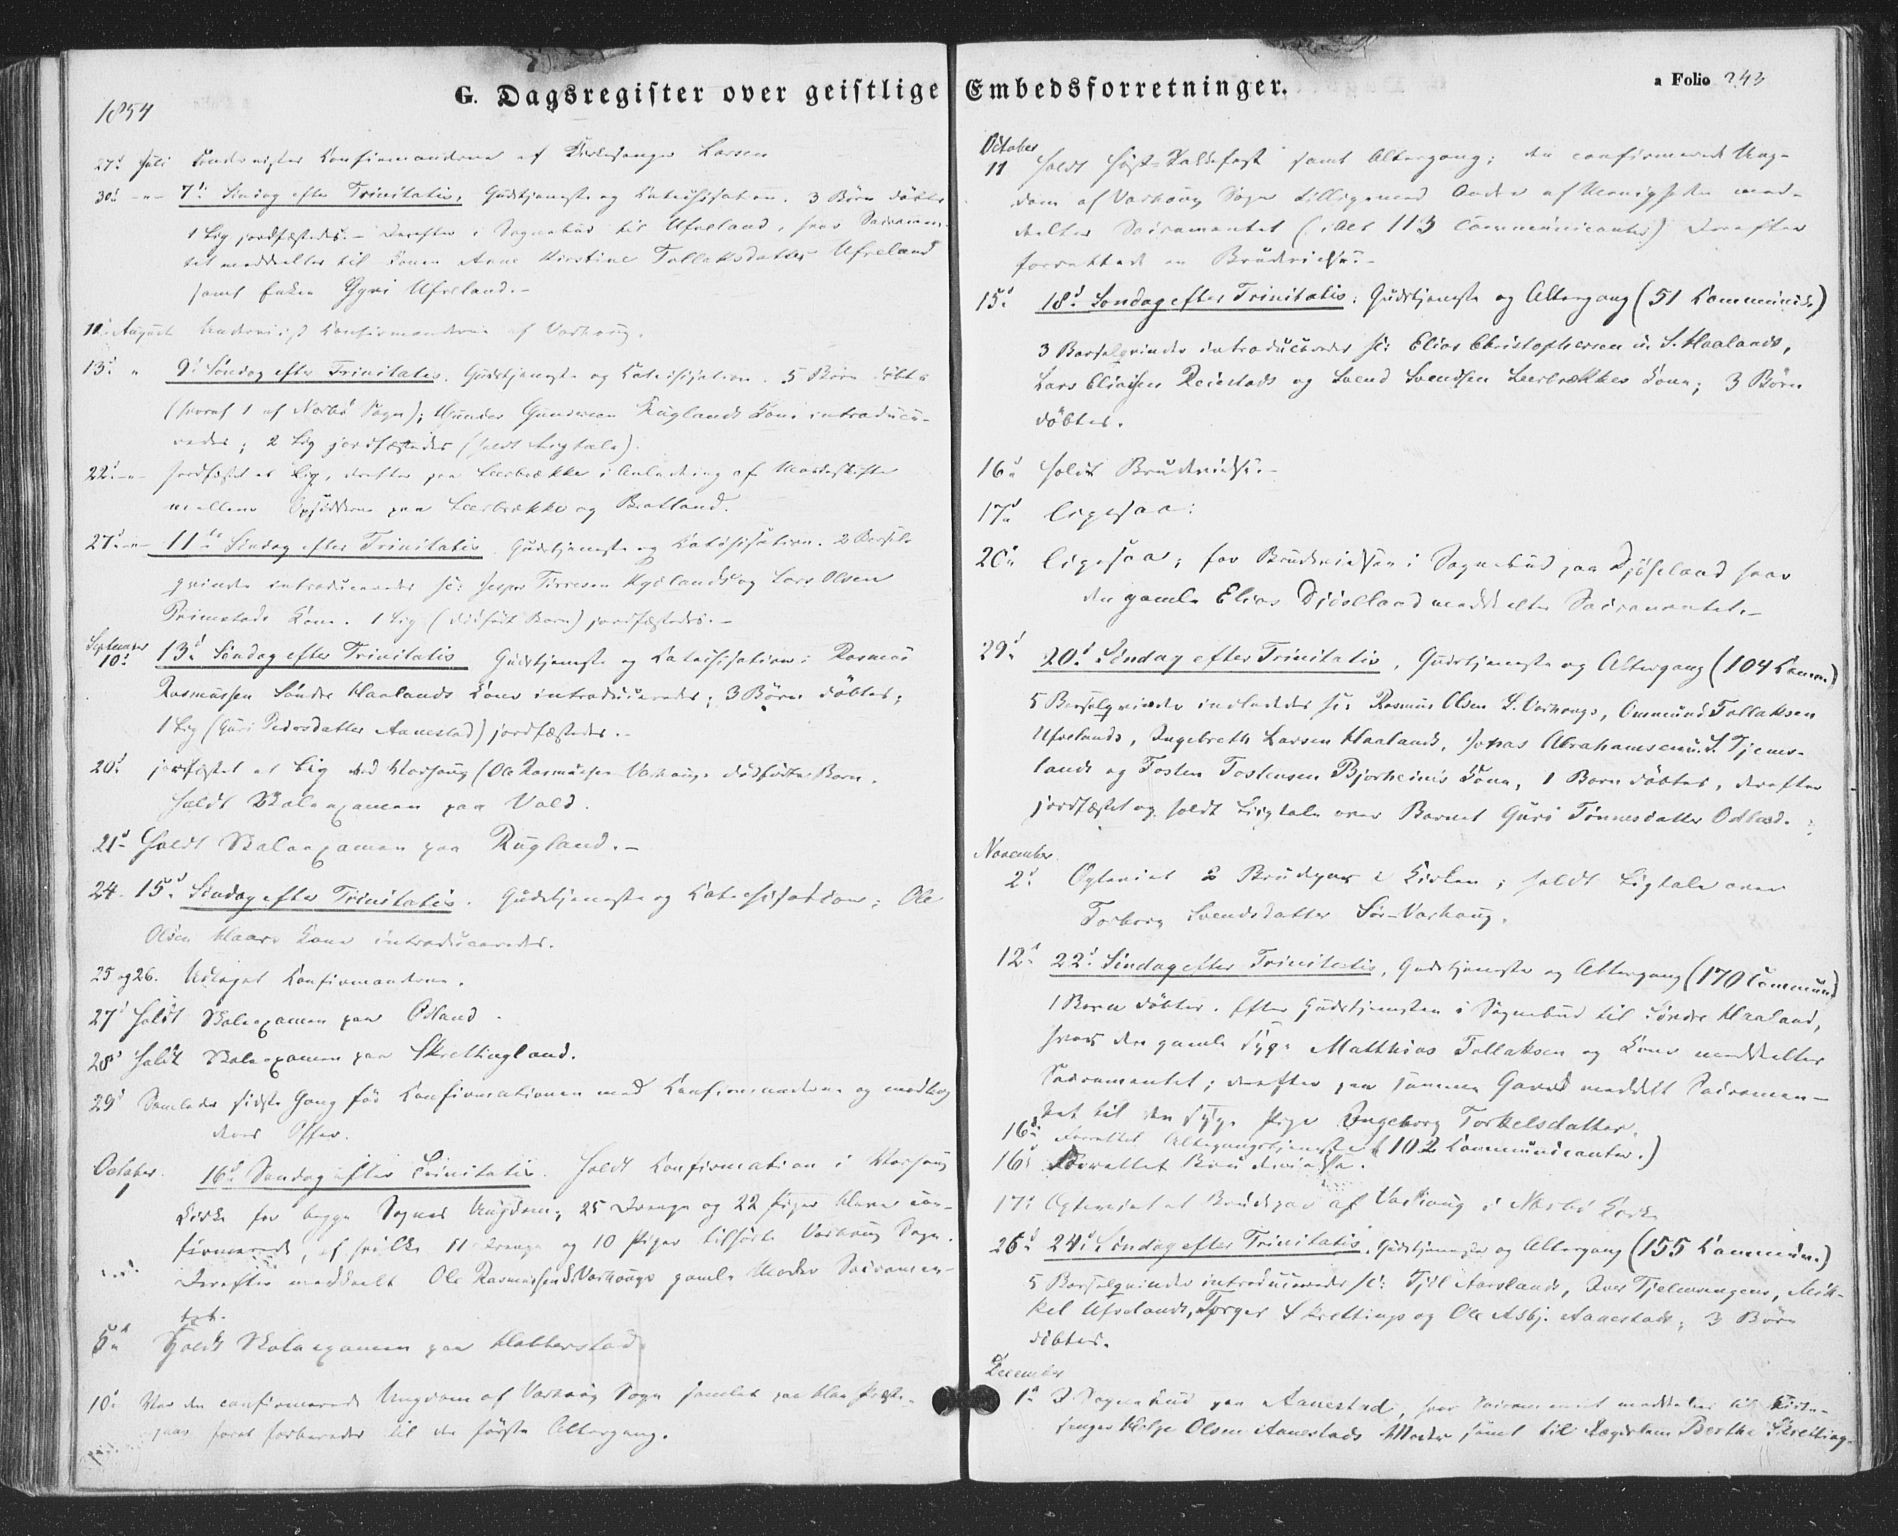 1854
G. Dagsregister over geistlige Embedsforretninger.
a Folio 243
27d Juli Confirmanderne af Kirkesanger Larsen
30d -"- 7d Søndag efter Trinitatis, Gudstjeneste og Catechisation. 3 Børn døbte
1 Lig jordfæstedes. – Derefter i Sognebud til Ufseland, hvor Sacramen-
tet meddeeltes til Konen Anne Kirstine Tollaksdatter Ufseland
samt Enken Gyri Ufseland. –
11d August Confirmanderne af Varhoug.
13d " 9d Søndag efter Trinitatis. Gudstjeneste og Catechisation. 5 Børn døbte
(hvoraf 1 af Nærbø Sogn); Gunder Ruglands Kone introduce-
redes; 2 Lig jordfæstedes (holdt Ligtale).
22d -"- Jordfæstet et Lig, derefter paa Leerbrække i Anledning af
mellem Opsidderne paa Leerbrække og Bratland.
27d -"- 11te Søndag efter Trinitatis Gudstjeneste og Catechisation. 2 Barsel-
qvinder introduceredes sc: Jesper Tørresen Kydlands og Lars Olsen
Primstads Kone. 1 Lig (dødfødt Barn) jordfæstedes. –
September
10d 13d Søndag efter Trinitatis Gudstjeneste og Catechisation; Rasmus
Rasmussen Søndre Haalands Kone introduceredes; 3 Børn døbtes;
1 Lig (Guri Pedersdatter Aanestad) jordfæstedes. –
20d jordfæstet et Lig ved Varhoug (Ole Rasmussen Varhougs dødfødte Barn.
holdt Skoleexamen paa Vold.
21d Holdt Skoleexamen paa Rugland. –
24. 15d Søndag efter Trinitatis. Gudstjeneste og Catechisation; Ole
Olsen Haars Kone introduceredes.
25 og 26. Udtaget Confirmanderne.
27d Holdt Skoleexamen paa Ødland.
28d Holdt Skoleexamen paa Skrettingland.
29d Samledes sidste Gang før Confirmationen med Confirmanderne og modtog
deres Offer.
October
1 16d Søndag efter Trinitatis. Holdt Confirmation i Varhoug
Kirke for begge Sognes Ungdom; 25 Drenge og 22 Piger bleve con-
firmerede, af hvilke 11 Drenge og 10 Piger tilhørte Varhoug Sogn.
Derefter meddeelt Ole Rasmussen S. Varhougs gamle Moder Sacramen-
tet.
5d Holdt Skoleexamen paa Hatterstad.
10d Var den confirmerede Ungdom af Varhoug Sogn samlet paa Præste-
gaard forat forberedes til den første Altergang.
October
11 Holdt Høst-Takkefest samt Altergang; den confirmerede Ung-
dom af Varhoug Sogn tilligemed Andre af Menigheden med-
deeltes Sacramentet (ialt 113 Communicanter) Derefter
forrettede en Brudevielse. –
15d 18d Søndag efter Trinitatis; Gudstjeneste og Altergang (51 Communik.)
3 Barselqvinder introduceredes sc: Elias Christophersen u. S. Haalands,
Lars Eliasen Reiestads og Svend Svendsen Leerbrækkes Kone; 3 Børn
døbtes.
16d holdt Brudevielse. –
17d ligesaa:
20d ligesaa; før Brudevielsen i Sognebud paa Djøseland hvor
den gamle Elias Djöselland meddeeltes Sacramentet. –
29d 20d Søndag efter Trinitatis, Gudstjeneste og Altergang (104 Commn)
5 Barselqvinder indlededes sc: Rasmus Olsen S. Varhougs, Ommund Tollaksen
Ufselands, Ingebreth Larsen Haalands, Jonas Abrahamsen u. S. Tjems-
lands og Tosten Tostensen Bjorheims Kone, 1 Barn døbtes, derefter
jordfæstet og holdt Ligtale over Barnet Guri Tönnesdatter Ödland.
November
2d Egteviet 2 Brudepar i Kirken; holdt Ligtale over
Torborg Svendsdatter Sör-Varhoug.
12d 22d Søndag efter Trinitatis, Gudstjeneste og Altergang (170 Commun)
1 Barn døbtes. Efter Gudstjenesten i Sognebud til Söndre Haaland,
hvor den gamle syge Matthias Tollaksen og Kone meddeeltes
Sacramentet; derefter paa samme Gaard meddelt Sacramen-
tet til den syge Pige Ingeborg Torkelsdatter.
16d Forrettet Altergangstjeneste (102 Communicanter.)
16d Forrettet Brudevielse.
17d Egteviet et Brudepar af Varhoug i Nærbø Kirke
26d 24d Søndag efter Trinitatis, Gudstjeneste og Altergang (155 Commun.)
5 Barselqvinder introduceredes sc: Tjöl Aarslands, Iver Tjelmvengens, Mik-
kel Ufselands, Torger Skrettings og Ole Asbj. Aanestads; 3 Børn
döbtes.
December
1d I Sognebud paa Aanestad, hvor Sacramentet meddeeltes til Kirke-
sanger Helje Olsen Aanestads Moder samt til Lægdslem Berthe Skretting-